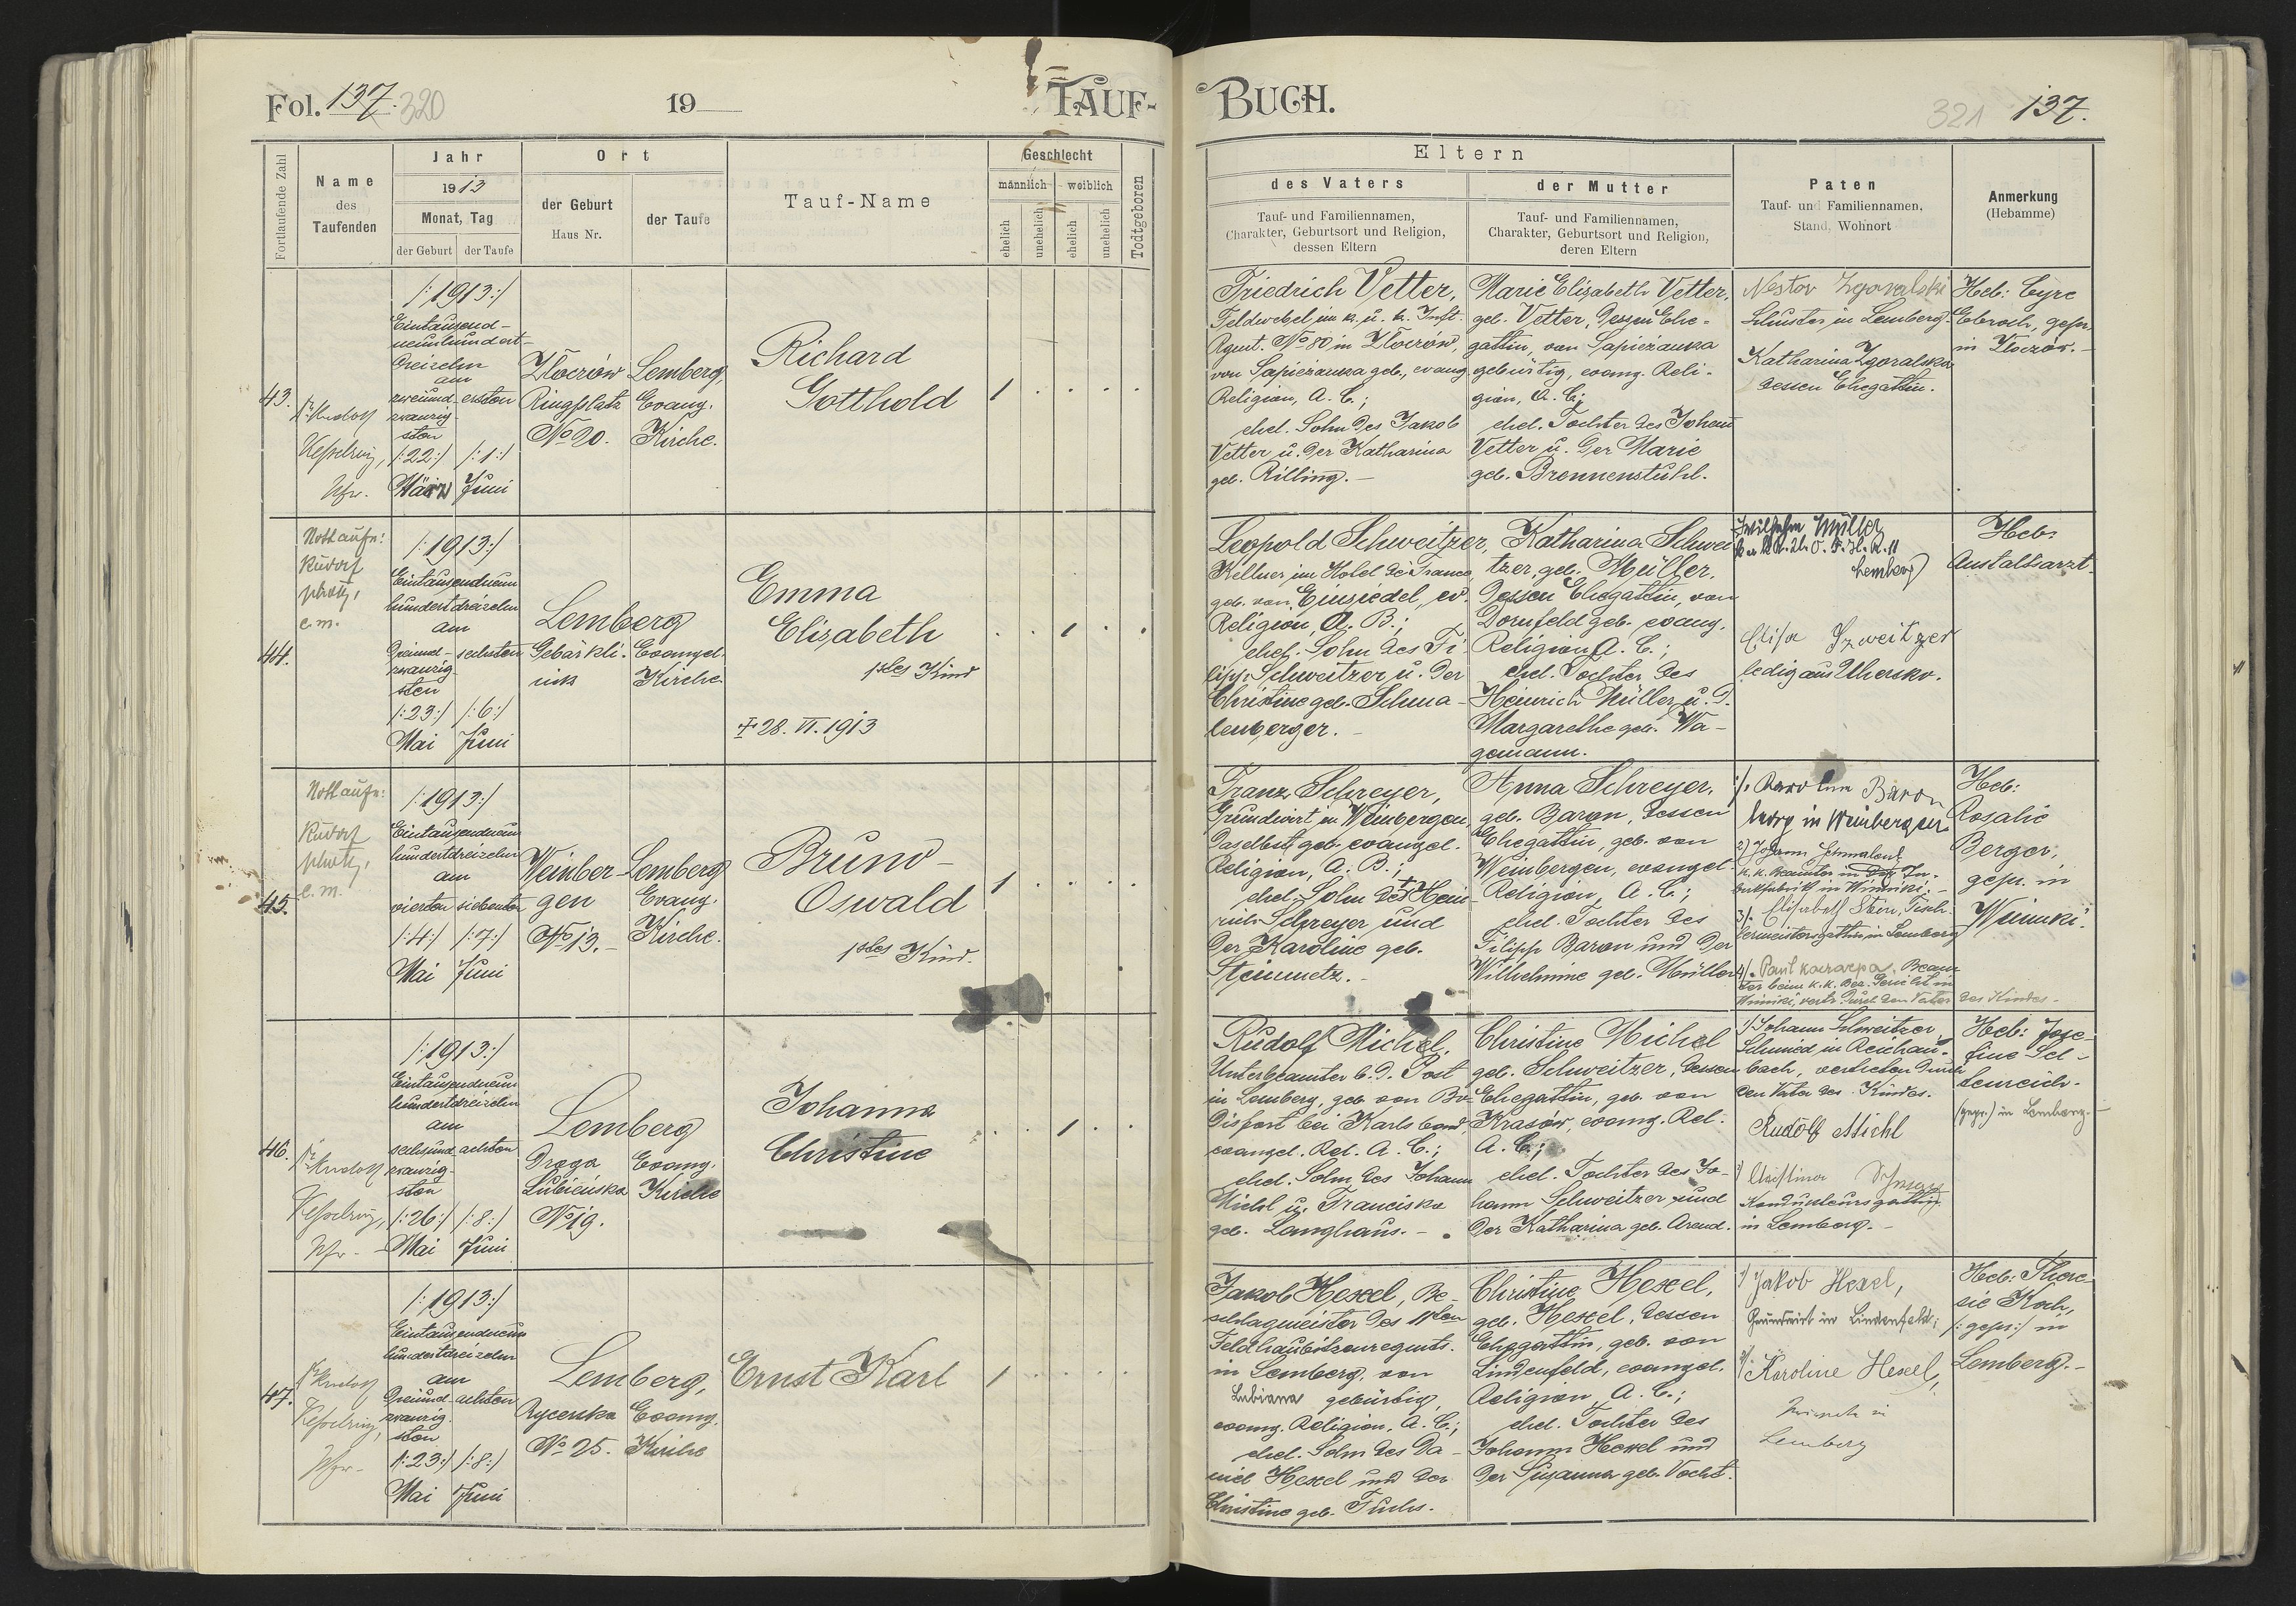 Fol. 137. 320
19
TAUF-
BUCH.
321 137.
Fortlaufende Zahl
Name
des
Taufenden
Jahr
1913
Monat, Tag
der Geburt
der Taufe
Ort
der Geburt
Haus Nr.
der Taufe
Tauf-Name
Geschlecht
männlich
weiblich
ehelich
unehelich
ehelich
unehelich
Todtgeboren
Eltern
des Vaters
Tauf- und Familiennamen,
Charakter, Geburtsort und Religion,
dessen Eltern
der Mutter
Tauf- und Familiennamen,
Charakter, Geburtsort und Religion,
deren Eltern
Paten
Tauf- und Familiennamen,
Stand, Wohnort
Anmerkung
(Hebamme)
43.
Dr. Rudolf
Kesselring,
Pfr.
/:1913:/
Eintausend-
neunhundert-
dreizehn
am
zweiund-
zwanzig-
sten
/:22:/
März
ersten
/:1:/
Juni
Złoczów
Ringplatz
No 20.
Lemberg,
Evang.
Kirche.
Richard
Gotthold
1
Friedrich Vetter,
Feldwebel im k. u. k. Inft.
Rgmt. No 80 in Złoczów,
von Sapieżanka geb., evang.
Religion, A. C.;
ehel. Sohn des Jakob
Vetter u. der Katharina
geb. Rilling. –
Marie Elizabeth Vetter,
geb. Vetter, dessen Ehe-
gattin, von Sapieżanka
gebürtig, evang. Reli-
gion, A. C.;
ehel. Tochter des Johann
Vetter u. der Marie
geb. Brennenstuhl.
Nestor Zgoralski
Schuster in Lemberg
Katharina Zgoralska
dessen Ehegattin.
Heb:
gepr.
in Złoczów. –
44.
Nottaufe:
Rudolf
e. m.
/:1913:/
Eintausendneun
hundertdreizehn
am
dreiund-
zwanzig-
sten
/:23:/
Mai
sechsten
/:6:/
Juni
Lemberg
Gebärkli-
nik
Evangel.
Kirche.
Emma
Elizabeth
1stes Kind
28. VI. 1913
1
Leopold Schweitzer,
Kellner im Hotel de France,
geb. von Einsiedel, ev.
Religion, A. B.;
ehel. Sohn des Fi-
lipp Schweitzer u. der
Christine geb. Schma-
lenberger. –
Katharina Schwei
tzer, geb. Müller,
dessen Ehegattin, von
Dornfeld geb. evang.
Religion A. C.;
ehel. Tochter des
Heinrich Müller u. d.
Margarethe geb. Wa-
gemann.
Wilhelm Müller
Lemberg
Elisa Szweitzer
ledig aus Uhersko.
Heb:
Anstaltsarzt.
45.
Nottaufe:
Rudolf
e. m.
/:1913:/
Eintausendneun
hundertdreizehn
am
vierten
/:4:/
Mai
siebenten
/:7:/
Juni
Weinber-
gen
No 13. –
Lemberg
Evang.
Kirche.
Bruno-
Oswald
1stes Kind.
1
Franz Schreyer,
Grundwirt in Weinbergen,
daselbst geb. evangel.
Religion, A. B.;
ehel. Sohn des + Hein
rich Schreyer und
der Karoline geb.
Steinmetz. –
Anna Schreyer,
geb. Baron, dessen
Ehegattin, geb. von
Weinbergen, evangel.
Religion, A. C.;
ehel. Tochter des
Filipp Baron und der
Wilhelmine geb. Müller
1/. Baron
ledig in Weinbergen
2) Johann
k. k. Beamter in der Ta-
bakfabrik in Winniki. –
3/. Elisabeth Stein, Tisch-
lermeistersgattin in Lemberg
4/. Paul Beam-
ter beim k. k. Bez. Gericht in
Winniki, vertr. durch den Vater des Kindes. –
Heb:
Rosalie
Berger,
gepr. in
Winniki.
46.
Dr. Rudolf
Kesselring,
Pfr. –
/:1913:/
Eintausendneun
hundertdreizehn
am
sechsund-
zwanzig-
sten
/:26:/
Mai
achten
/:8:/
Juni
Lemberg
Droga
Lubieńska
No 19.
Evang.
Kirche
Johanna
Christine
1
Rudolf Michel,
Unterbeamter b. d. Post
in Lemberg, geb. von
bei Karlsbad,
evangel. Rel. A. C.;
ehel. Sohn des Johann
Michl u. Franciska
geb. Langhans. –
Christine Michel
geb. Schweitzer, dessen
Ehegattin, geb. von
Krasów, evang. Rel.
A. C.;
ehel. Tochter des Jo-
hann Schweitzer und
der Katharina geb. Arend.
1/ Johann Schweitzer
Schmied in Reichau-
bach, vertreten durch
den Vater des Kindes.
Rudolf Michl
Christina
Kondukteursgattin
in Lemberg. –
Heb: Jose-
fine
(gepr.) in Lemberg. –
47.
Dr. Rudolf
Kesselring,
Pfr. –
/:1913:/
Eintausendneun
hundertdreizehn
am
dreiund-
zwanzig-
sten
/:23:/
Mai
achten
/:8:/
Juni
Lemberg,
Rycerska
No 25.
Evang.
Kirche
Ernst Karl
1
Jakob Hexel, Be-
schlagmeister des 11ten
Feldhaubitzenregmts.
in Lemberg, von
Lubiana gebürtig,
evang. Religion, A. C.;
ehel. Sohn des Da-
niel Hexel und der
Christine geb. Fuchs.
Christine Hexel,
geb. Hexel, dessen
Ehegattin, geb. von
Lindenfeld, evangel.
Religion, A. C.;
ehel. Tochter des
Johann Hexel und
der Susanna geb. Vocht.
1/ Jakob Hexel,
Grundwirt in Lindenfeld;
2/ Karoline Hexel,
in
Lemberg
Heb: There-
sie Koch,
/:gepr.:/ in
Lemberg. –